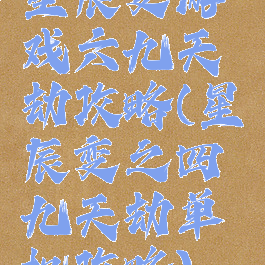 星辰变游
戏六九天
劫攻略(星
辰变之四
九天劫单
机攻略)